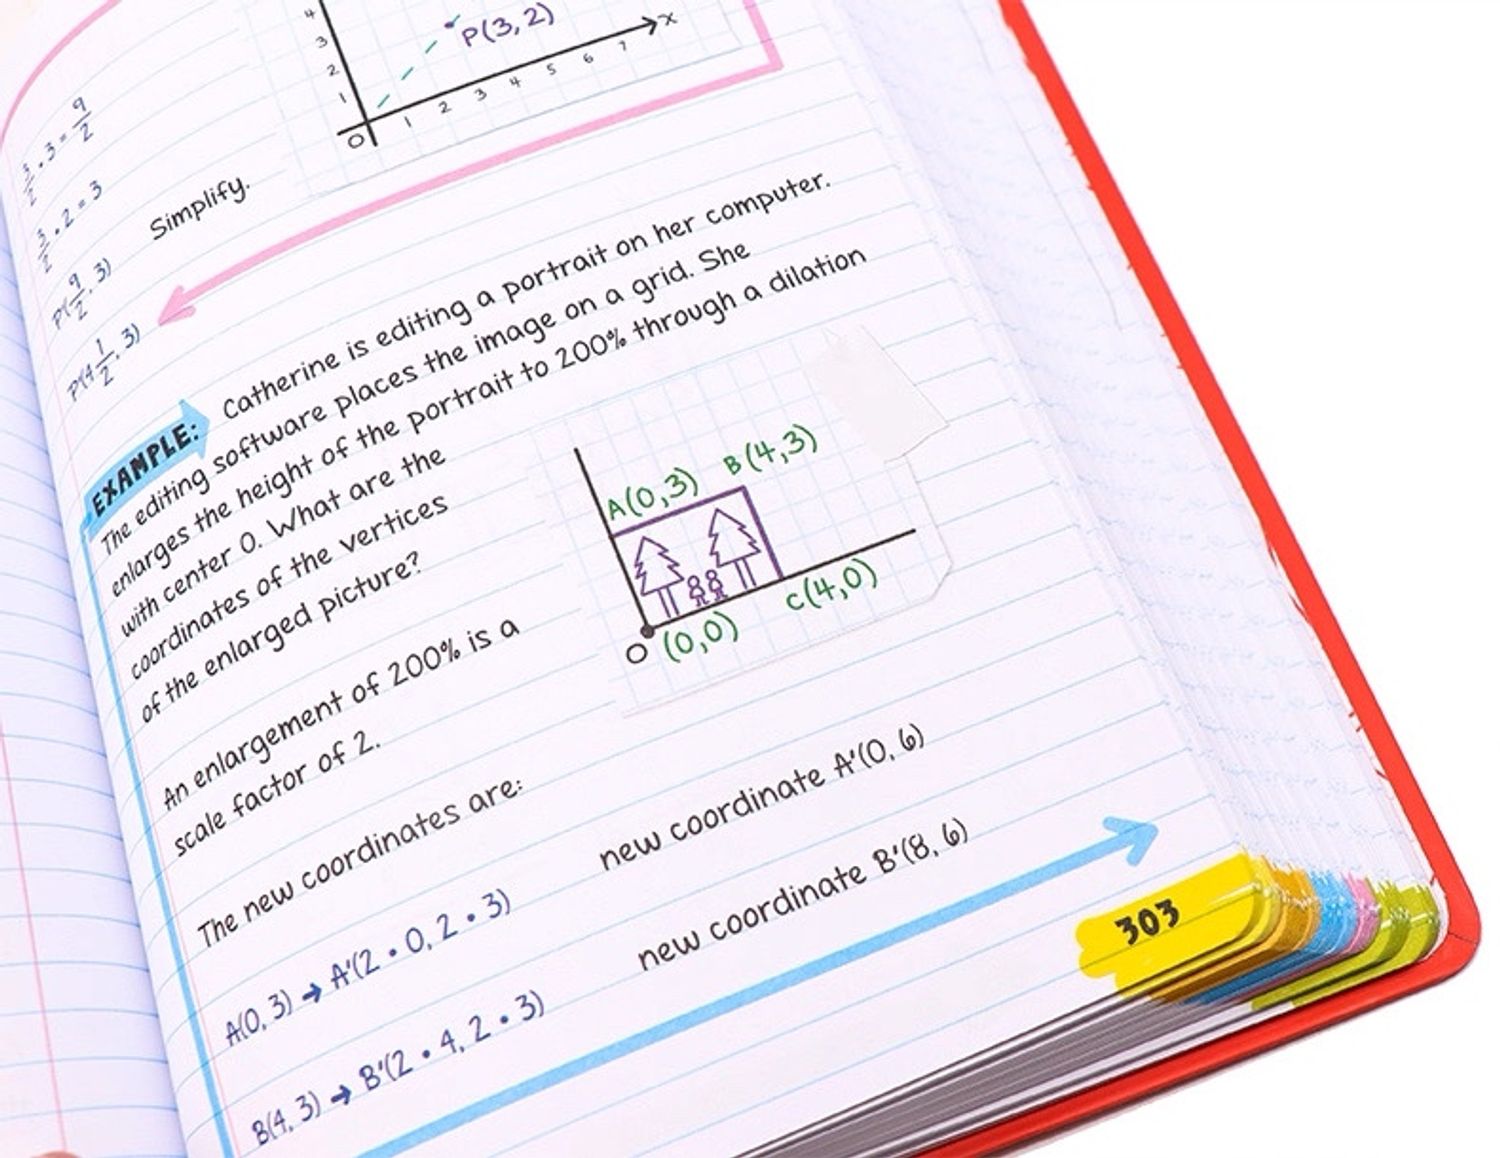 4
3
2
1
O
1 2 3 4 5 6 7
x
P(3, 2)
3/2 • 3 = 9/2
3/2 • 2 = 3
P'(9/2, 3)
P'(4 1/2, 3)
Simplify.
EXAMPLE: Catherine is editing a portrait on her computer.
The editing software places the image on a grid. She
enlarges the height of the portrait to 200% through a dilation
with center O. What are the
coordinates of the vertices
of the enlarged picture?
A(0,3) B(4,3)
C(4,0)
O (0,0)
An enlargement of 200% is a
scale factor of 2.
The new coordinates are:
A(0, 3) → A'(2 • 0, 2 • 3) new coordinate A'(0, 6)
B(4, 3) → B'(2 • 4, 2 • 3) new coordinate B'(8, 6)
303